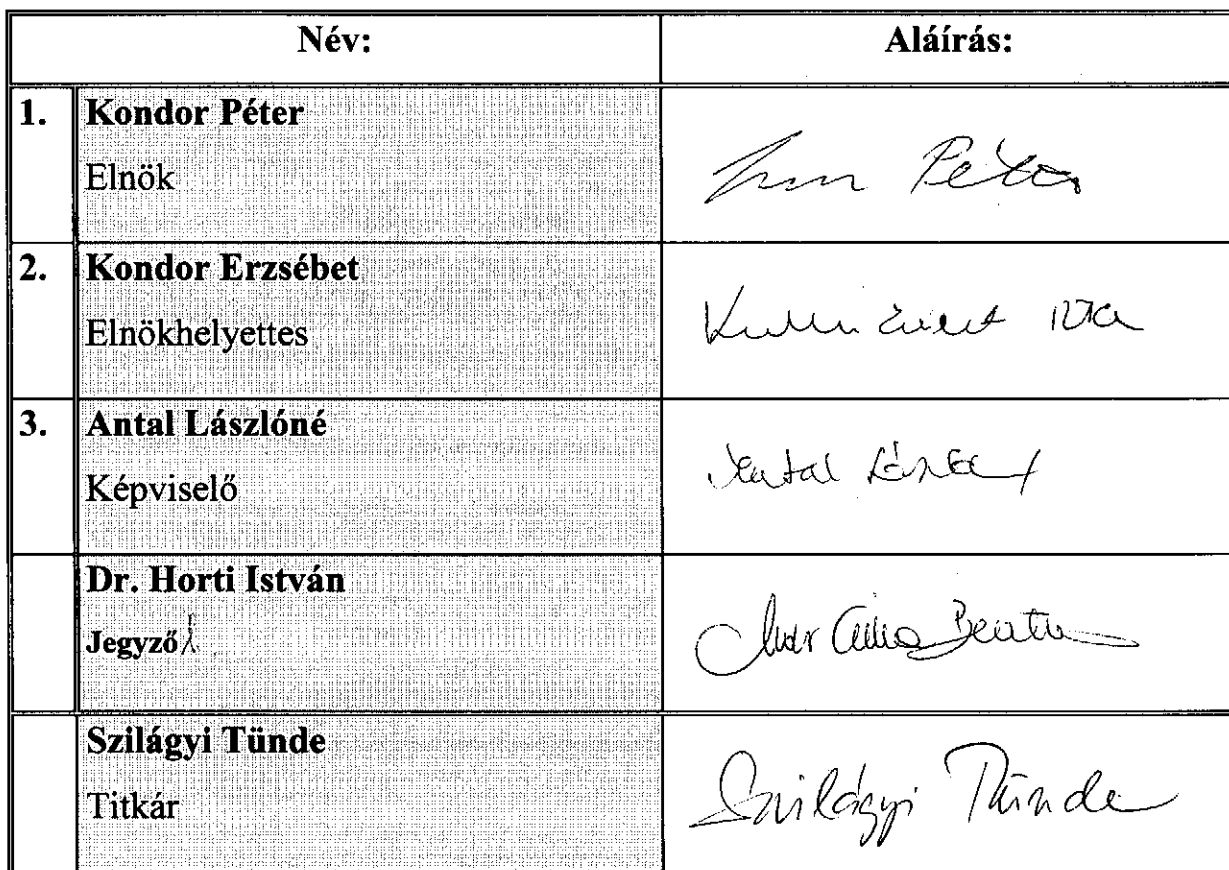 Név: Aláírás:
1. Kondor Péter
Elnök
Péter
2. Kondor Erzsébet
Elnökhelyettes
3. Antal Lászlóné
Képviselő
Antal
Dr. Horti István
Jegyző
Szilágyi Tünde
Titkár
Szilágyi Tünde